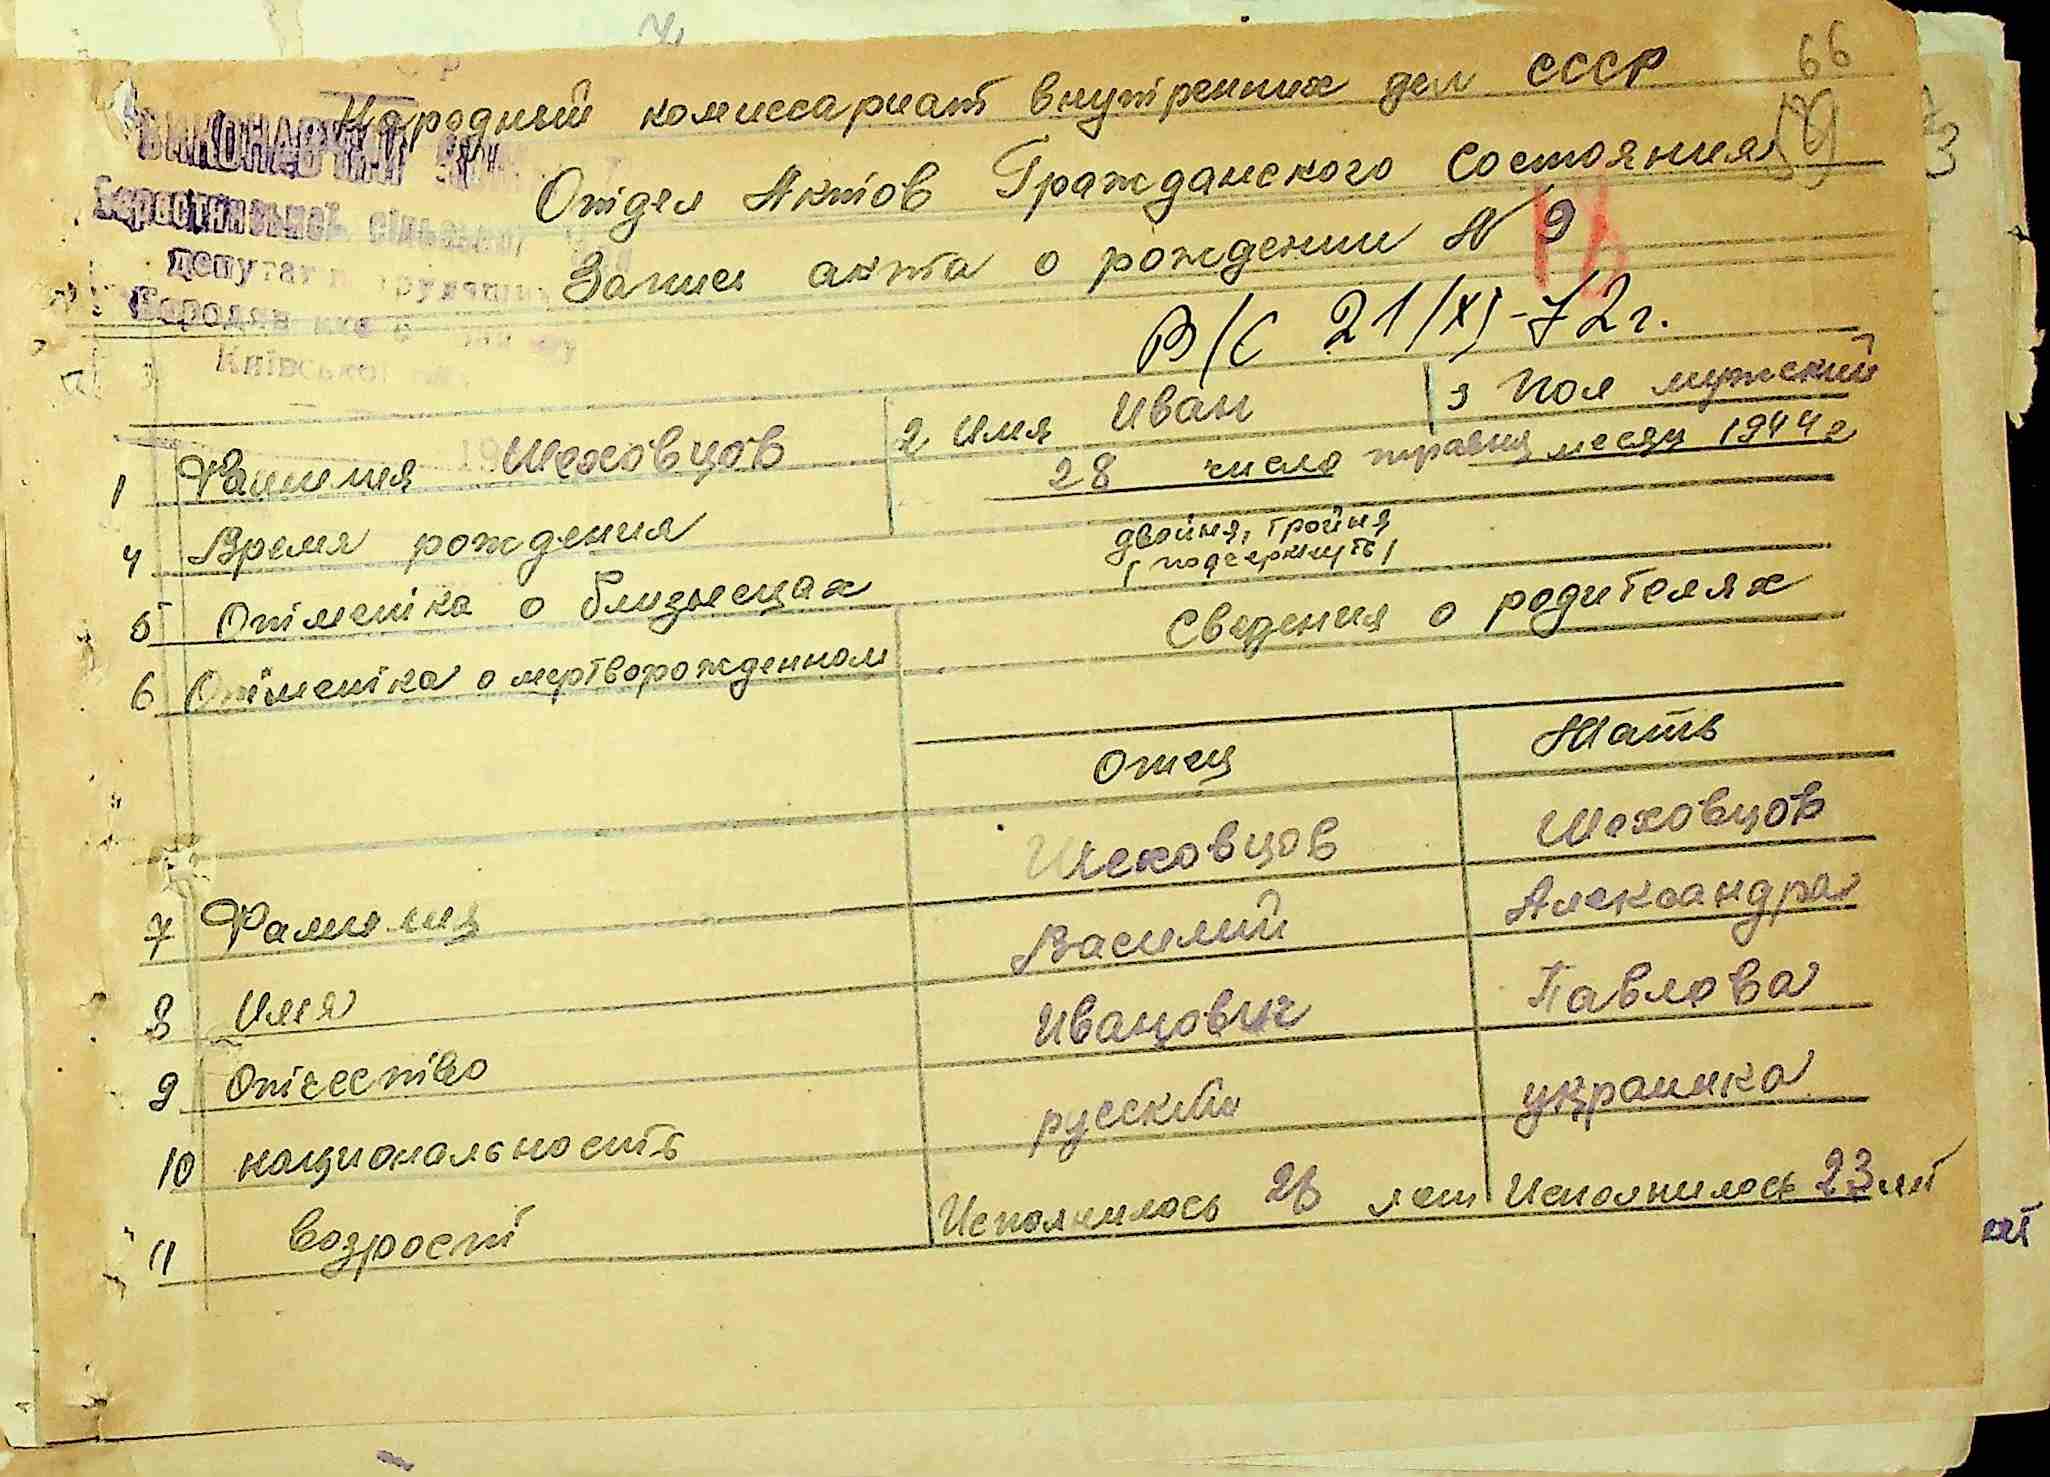 66
Народный комиссариат внутренних дел СССР
59
Отдел Актов Гражданского Состояния
Запись акта о рождении № 9
ВИКОНАВЧИЙ
сільської
депутат
Київської
В/С 21/XI-72г.
1 Фамилия Шеховцов 2 Имя Иван 3 Пол мужский
4 Время рождения 28 число травня месяц 1944 г
5 Отметка о близнецах двойня, тройня
(подчеркнуть)
6 Отметка о мертворожденном
Сведения о родителях
Отец Мать
7 Фамилия Шеховцов Шеховцов
8 Имя Василий Александра
9 Отчество Иванович Павлова
10 национальность русский украинка
11 возрост Исполнилось лет Исполнилось 23 лет